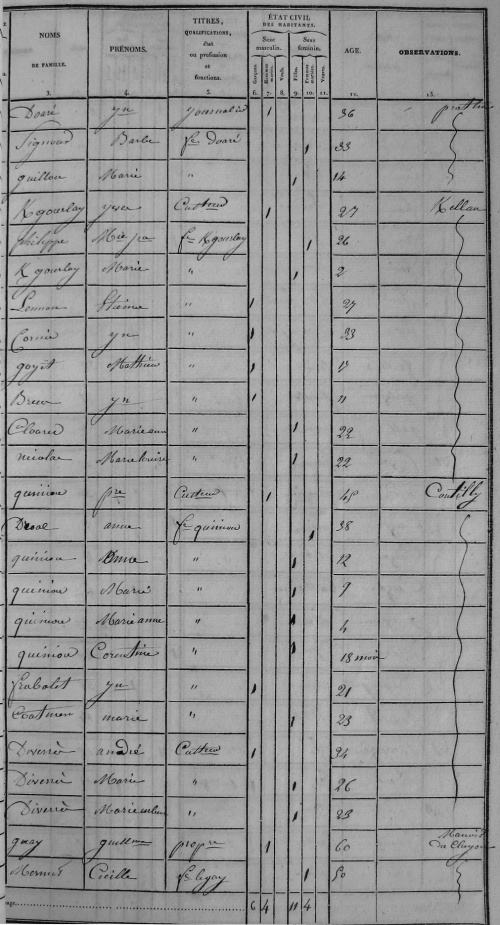 NOMS DE FAMILLE. PRÉNOMS. TITRES, QUALIFICATIONS, état ou profession et fonctions. ÉTAT CIVIL DES HABITANTS. Sexe masculin. Sexe féminin. AGE. OBSERVATIONS.
Garçons. Hommes mariés. Veufs. Filles. Femmes mariées. Veuves.
3. 4. 5. 6. 7. 8. 9. 10. 11. 12. 13.
Doaré yn journalier 1 36
Barbe fe Doaré 1 33
quillou Marie " 1 14
K gourlay yves Cultteur 1 27 Kellan
philippe Mie fe K gourlay 1 26
K gourlay Marie " 1 2
Lennon Etienne " 1 27
Cornic yn " 1 33
goyet Mathieu " 1 17
yn " 1 11
Cloarec Marie anne " 1 22
nicolas Marie louise " 1 22
quiniou pre Cultteur 1 45
anne fe quiniou 1 38
quiniou Anne " 1 12
quiniou Marie " 1 9
quiniou Marie anne " 1 4
quiniou Corentine " 1 18 mois
frabolet yn " 1 21
marie " 1 23
Diverrès andré Cultteur 1 34
Diverrès Marie " 1 26
Diverrès Marie " 1 23
quay guillme propre 1 60 Manoir du
Cécille fe legay 1 50
6 4 11 4